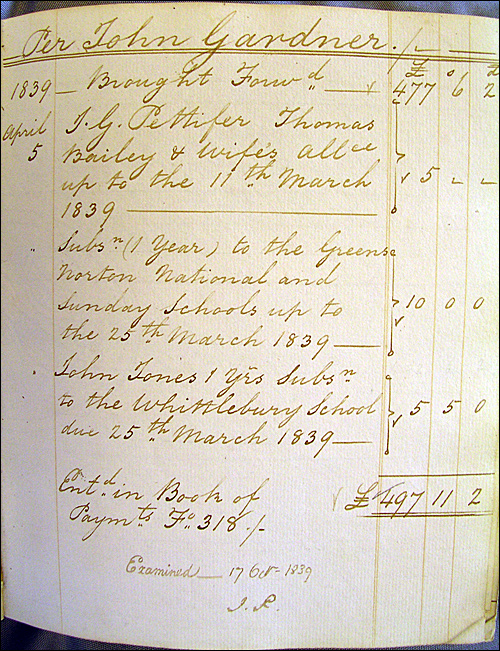 Per John Gardner./-
£ s d
1839 — Brought Forwd — 477 6 2
April J. G. Pettifer Thomas
5 Bailey & Wife's Allce
up to the 11th March 5 - -
1839 —
" Subsn (1 Year) to the Greens
Norton National and
Sunday Schools up to 10 0 0
the 25th March 1839 —
" John Jones 1 Yrs Subsn
to the Whittlebury School 5 5 0
due 25th March 1839 —
Entd in Book of £497 11 2
Paymts Fo 318./-
Examined — 17 Oct 1839